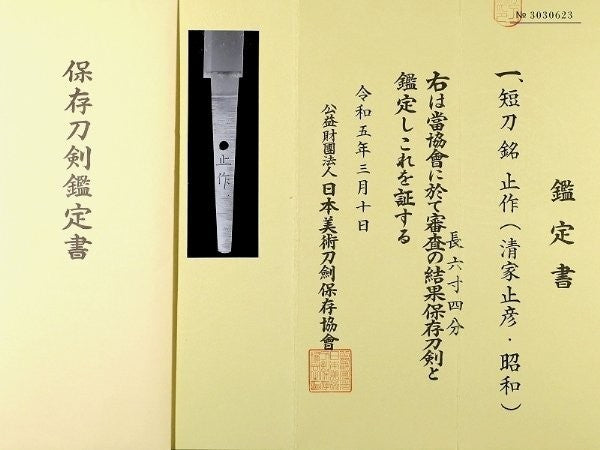 № 3030623
鑑定書
一、短刀 銘 止作(清家止彦・昭和)
長六寸四分
右は當協會に於て審査の結果保存刀剣と
鑑定しこれを証する
令和五年三月十日
公益財團法人日本美術刀劍保存協會
止作
保存刀剣鑑定書